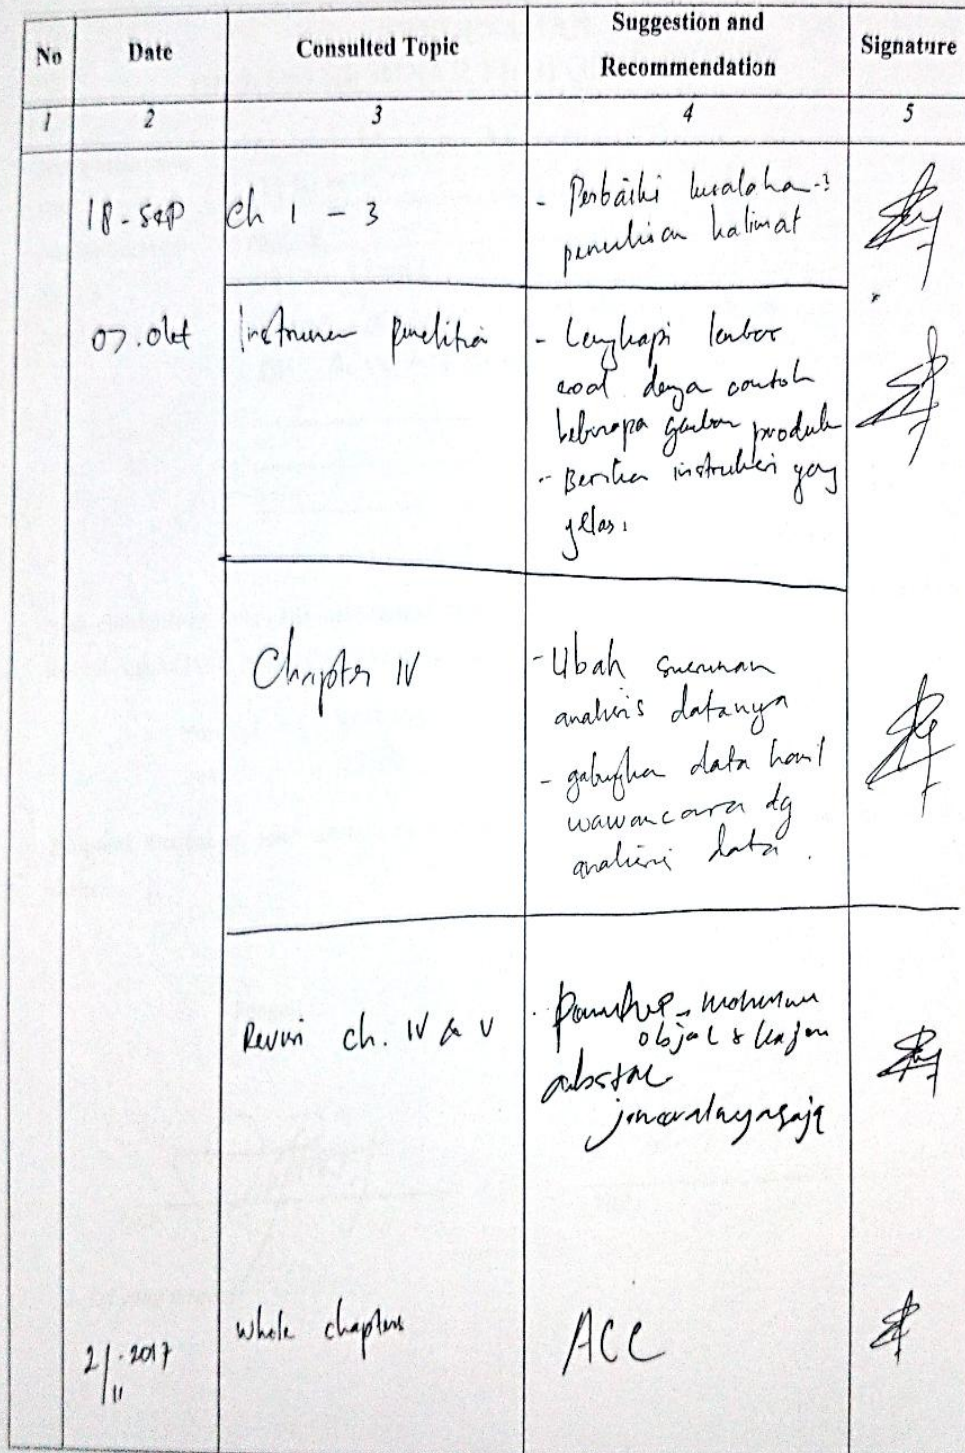 No Date Consulted Topic Suggestion and Recommendation Signature
1 2 3 4 5
18-Sep Ch 1 - 3
- Perbaiki
penulisan kalimat
07.Okt Instrumen penelitian
- Lengkapi lembar
soal dengan contoh
beberapa gambar produk
- Berikan instruksi yang
jelas.
Chapter IV
- Ubah susunan
analisis datanya
- gabungkan data hasil
wawancara dg
analisis data.
Revisi ch. IV & V
whole chapters
2/11-2017
ACC